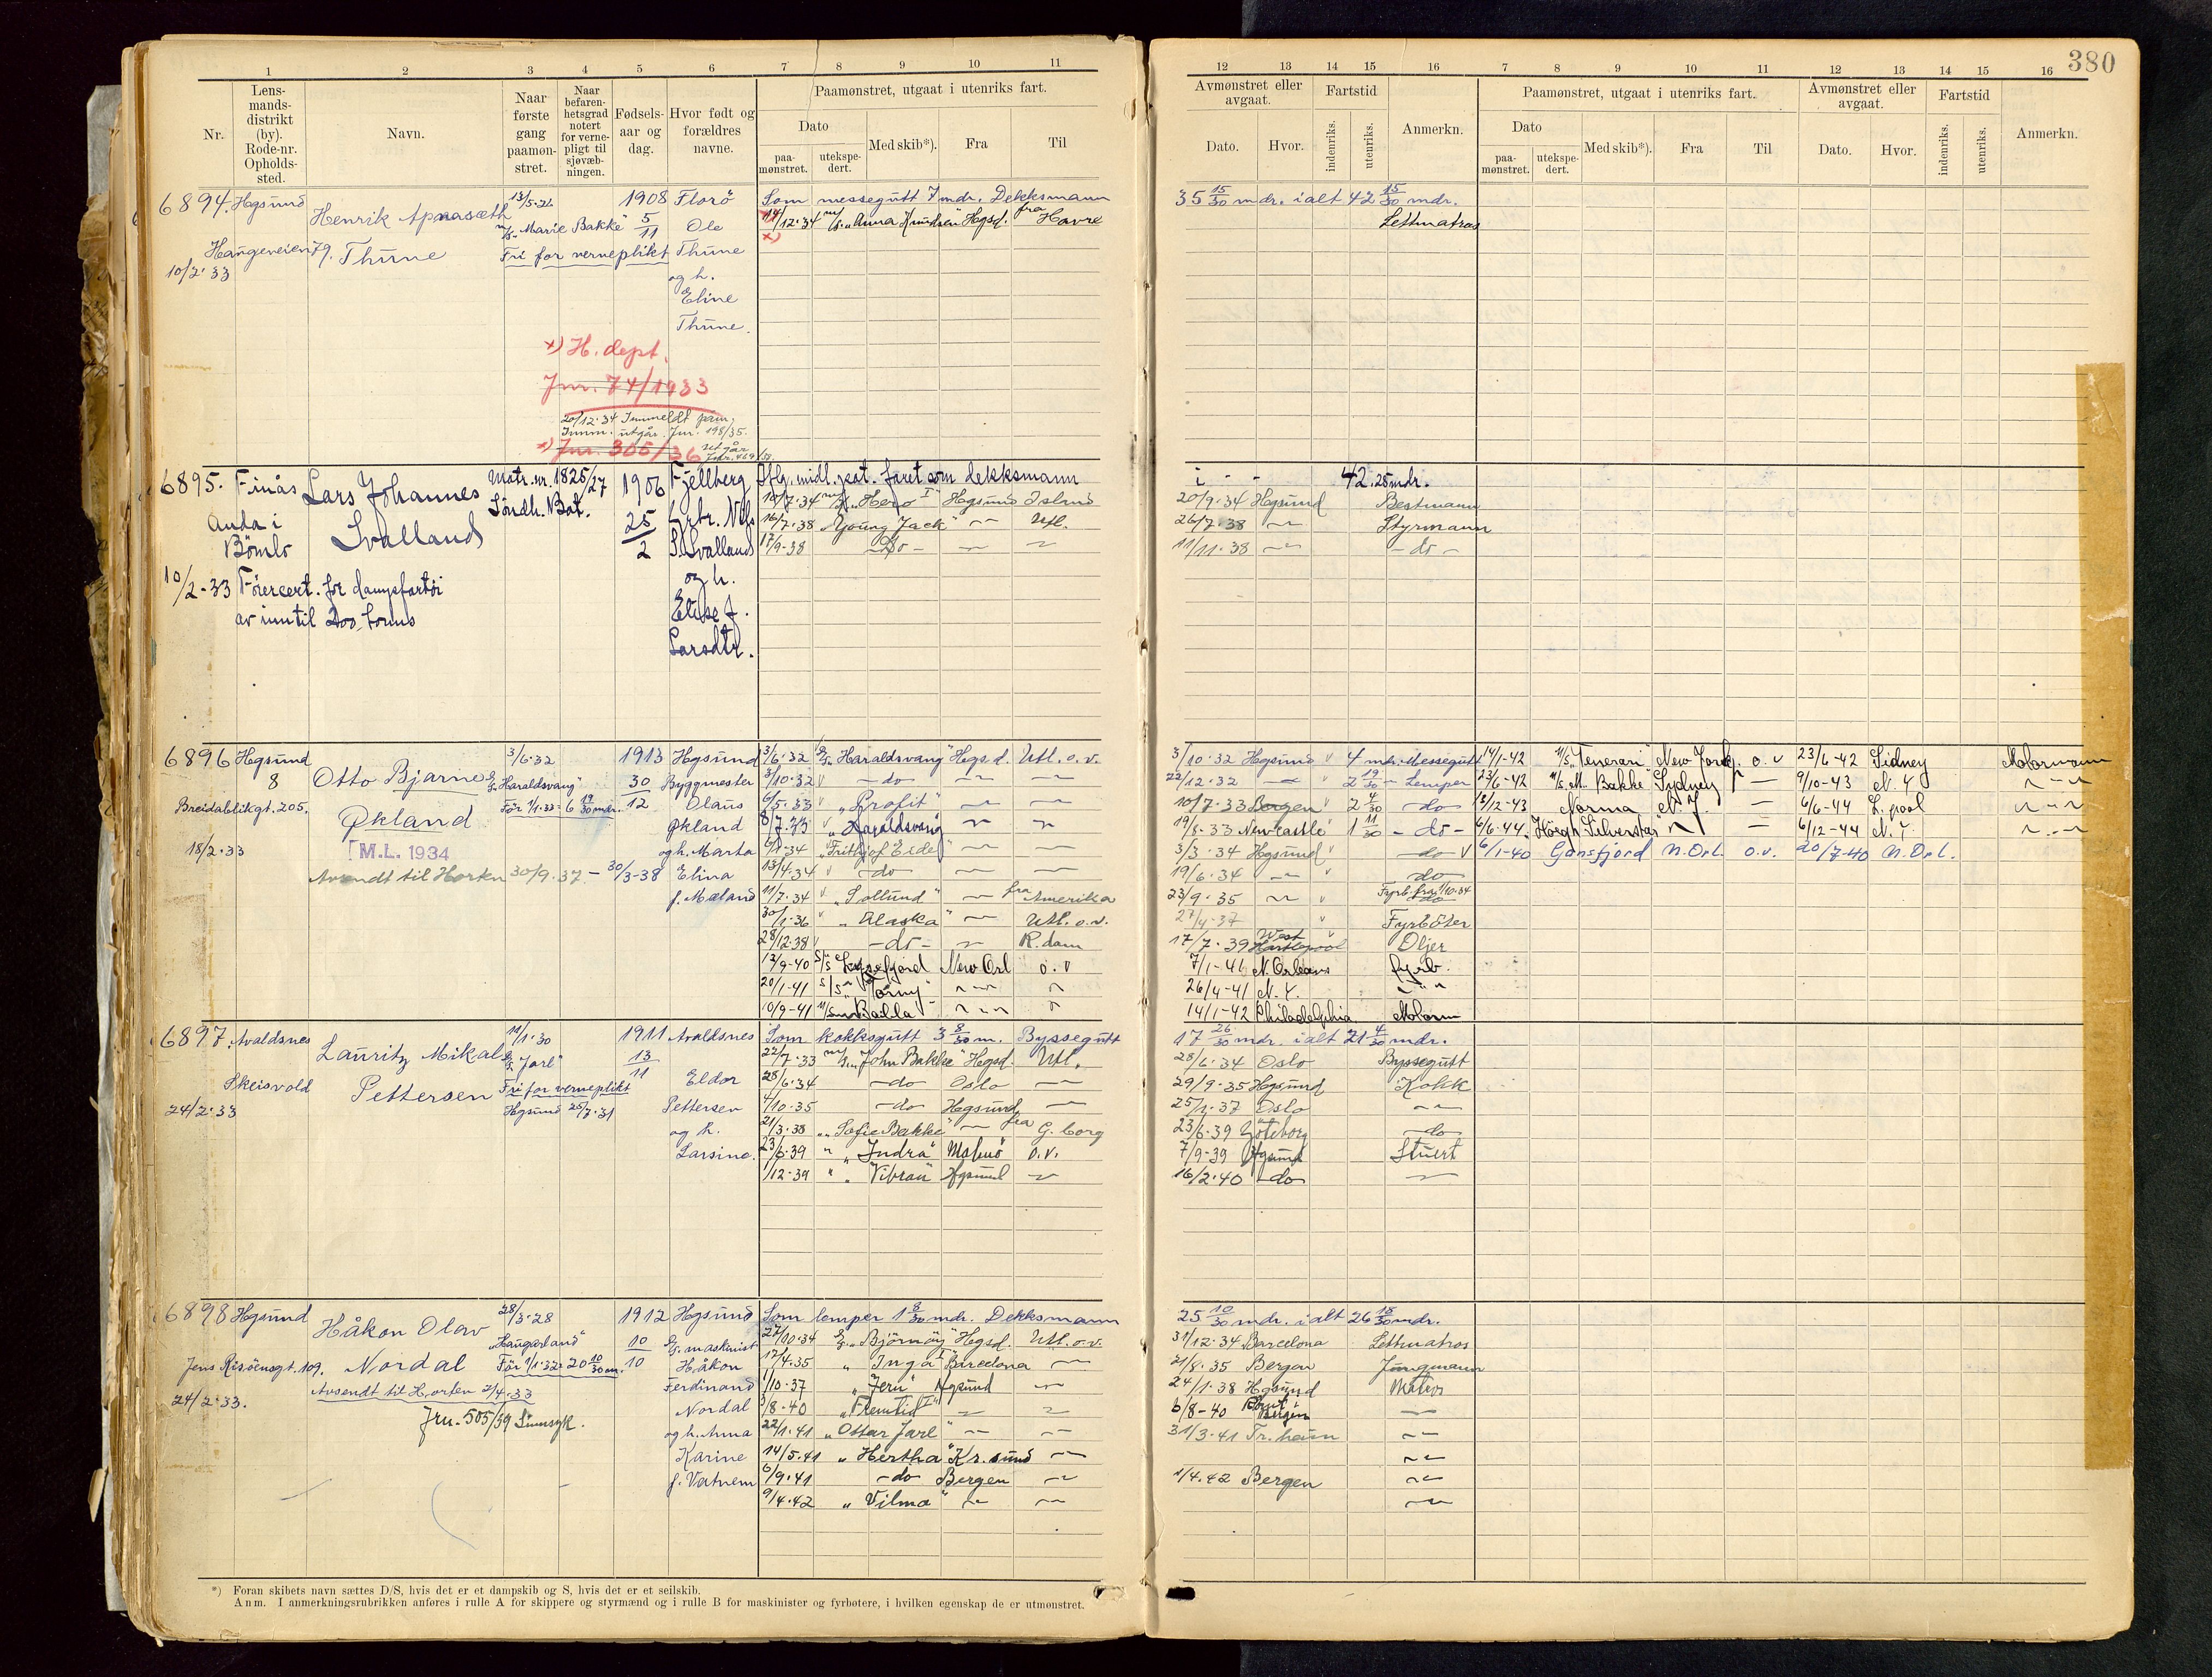 380
1 2 3 4 5 6 7 8 9 10 11
12 13 14 15 16 7 8 9 10 11 12 13 14 15 16
Nr.
Lens-
mands-
distrikt
(by).
Rode-nr.
Opholds-
sted.
Navn.
Naar
første
gang
paamøn-
stret.
Naar
befaren-
hetsgrad
notert
for verne-
pligt til
sjøvæb-
ningen.
Fødsels-
aar og
dag.
Hvor født og
forældres
navne.
Paamønstret, utgaat i utenriks fart.
Dato
paa-
mønstret.
utekspe-
dert.
Med skib*).
Fra
Til
Avmønstret eller
avgaat.
Dato.
Hvor.
Fartstid
indenriks.
utenriks.
Anmerkn.
Paamønstret, utgaat i utenriks fart.
Dato
paa-
mønstret.
utekspe-
dert.
Med skib*).
Fra
Til
Avmønstret eller
avgaat.
Dato.
Hvor.
Fartstid
indenriks.
utenriks.
Anmerkn.
6894. Hgsund
Haugeveien 79.
10/2.33
Henrik
Thune
"Marie Bakke"
Fri for verneplikt
1908
5
11
Florö
Ole
Thune
og h.
Eline
Thune.
Som messegutt 7 mdr. Dekksmann
14/12.34 m/s "Anna Knudsen" Hgsd. fra Havre
x) H. dept.
Jnr. 74/1933
20/12.34 Innmeldt
utgår Jnr. 198/35.
x) Jnr. 305/36 utgår
35 15/30 mdr. ialt 42 15/30 mdr.
Lettmatros
6895. Finås
Auda i
Bömlo
10/2-33 Förercert. for dampfartöi
av inntil 200 tonns
Lars Johannes
Svalland
Matr. nr. 1825/27
Söndh. Bat.
1906
25
2
Fjellberg
Grbr. Nils
Svalland
og h.
Elise f.
Larsdtr.
midl. faret som dekksmann
10/7.34 "Hero I" Hgsund Island
16/7.38 "Young Jack" -"- Utl.
17/9-38 -do- -"- -"-
42.25 mdr.
20/9.34 Hgsund Bestmann
26/7.38 -"- Styrmann
11/11.38 -"- -do-
6896 Hgsund
8
Breidablikgt. 205.
18/2.33
Otto Bjarne
Økland
M.L. 1934
Avsendt til Horten 30/9.37 - 30/3-38
3/6.32
"Haraldsvang"
För 1/1.33 = 6 19/30 mdr.
1913
30
12
Hgsund
Byggmester
Olaus
Økland
og h. Marta
Elina
f. Mæland
3/6.32 "Haraldsvang" Hgsd. Utl. o.v.
3/10.32 -do- -"- -"-
6/5.33 "Profit" -"- -"-
8/7.33 "Haraldsvang" -"- -"-
6/1.34 "Frithjof Eide" -"- -"-
13/4.34 -do- -"- -"-
11/7.34 "Sollund" -"- fra Amerika
30/1.36 "Alaska" -"- Utl. o.v.
28/12.38 -do- -"- R.dam
12/9-40 S/S Lysefjord New Orl o.v
20/1-41 S/S "Torny" -"- -"-
10/9-41 -"- -"-
3/10.32 Hgsund 4 mdr. Messegutt
22/12.32 -"- 2 19/30 - Lemper
10/7-33 Bergen 2 -do-
19/8-33 Newcastle 1 11/30 -do-
3/3.34 Hgsund -do-
19/6.34 -"- -do-
23/9.35 -"- Fyrb. fra 1/10-34
27/4-37 Fyrböter
17/7.39 West Hartlepool Oljer
7/1-41 N. Orleans fyrb.
26/4-41 N.Y. -"-
14/1-42 Philadelphia Motorm
14/1-42 M/S "Teneran" New York o.v 23/6-42 Sidney Motormann
23/6-42 M/S M. Bakke Sydney - 9/10-43 N.Y -"-
13/12-43 Norma N.Y. - 6/6-44 L.pool -"-
6/6-44. Höegh Silverstar -"- - 6/12-44 N.Y. -"-
6/1-40 Gansfjord N.Orl. o.v. 20/7-40 N.Orl.
6897. Avaldsnes
Skeisvold
24/2.33
Lauritz Mikal
Pettersen
11/1.30
"Jarl"
Fri for verneplikt
Hgsund 25/7.31
1911
13
11
Avaldsnes
Eldor
Pettersen
og h.
Larsine.
Som kokksgutt 3 8/30 m. Byssegutt
22/7.33 m/s "John Bakke" Hgsd. Utl.
28/6.34 -do- Oslo -"-
4/10.35 -do- Hgsund -"-
21/3.38 "Sofie Bakke" -"- fra G.borg
23/6.39 "Indra" Malmö o.v.
1/12.39 "Vibran" Hgsund -"-
17 26/30 mdr. ialt 21 4/30 mdr.
28/6.34 Oslo Byssegutt
29/9.35 Hgsund Kokk
25/1.37 Oslo -"-
23/6.39 Göteborg -do-
7/9-39 Hgsund Stuert
16/2.40 -do- -"-
6898 Hgsund
Jens Risöensgt. 109.
24/2.33.
Håkon Olav
Nordal
Avsendt til Horten 2/4.33
Jnr. 505/39 Sinnsyk.
28/3.28
"Haugarland"
För 1/1.32 = 20 10/30 m.
1912
10
10
Hgsund
maskinist
Håkon
Ferdinand
Nordal
og h. Anna
Karine
f. Vatnem
Som lemper 1 8/30 mdr. Dekksmann
27/10.34 "Björnöy" Hgsd. Utl. o.v.
17/4.35 "Inga I" Barcelona -"-
1/10.37 "Jern" Hgsund -"-
3/8-40 "Fremtid I" -"- -"-
22/1.41 "Ottar Jarl" -"- -"-
14/5.41 "Hertha" Kr.sund -"-
6/9.41 -do- Bergen -"-
9/4.42 "Vilma" -"- -"-
25 10/30 mdr. ialt 26 18/30 mdr.
31/12.34 Barcelona Lettmatros
21/8.35 Bergen Jungmann
24/1.38 Hgsund Matros
6/8-40 Bergen -"-
31/3.41 Tr.heim -"-
-"-
1/4.42 Bergen -"-
-"-
*) Foran skibets navn sættes D/S, hvis det er et dampskib og S, hvis det er et seilskib.
Anm. I anmerkningsrubrikken anføres i rulle A for skippere og styrmænd og i rulle B for maskinister og fyrbøtere, i hvilken egenskap de er utmønstret.